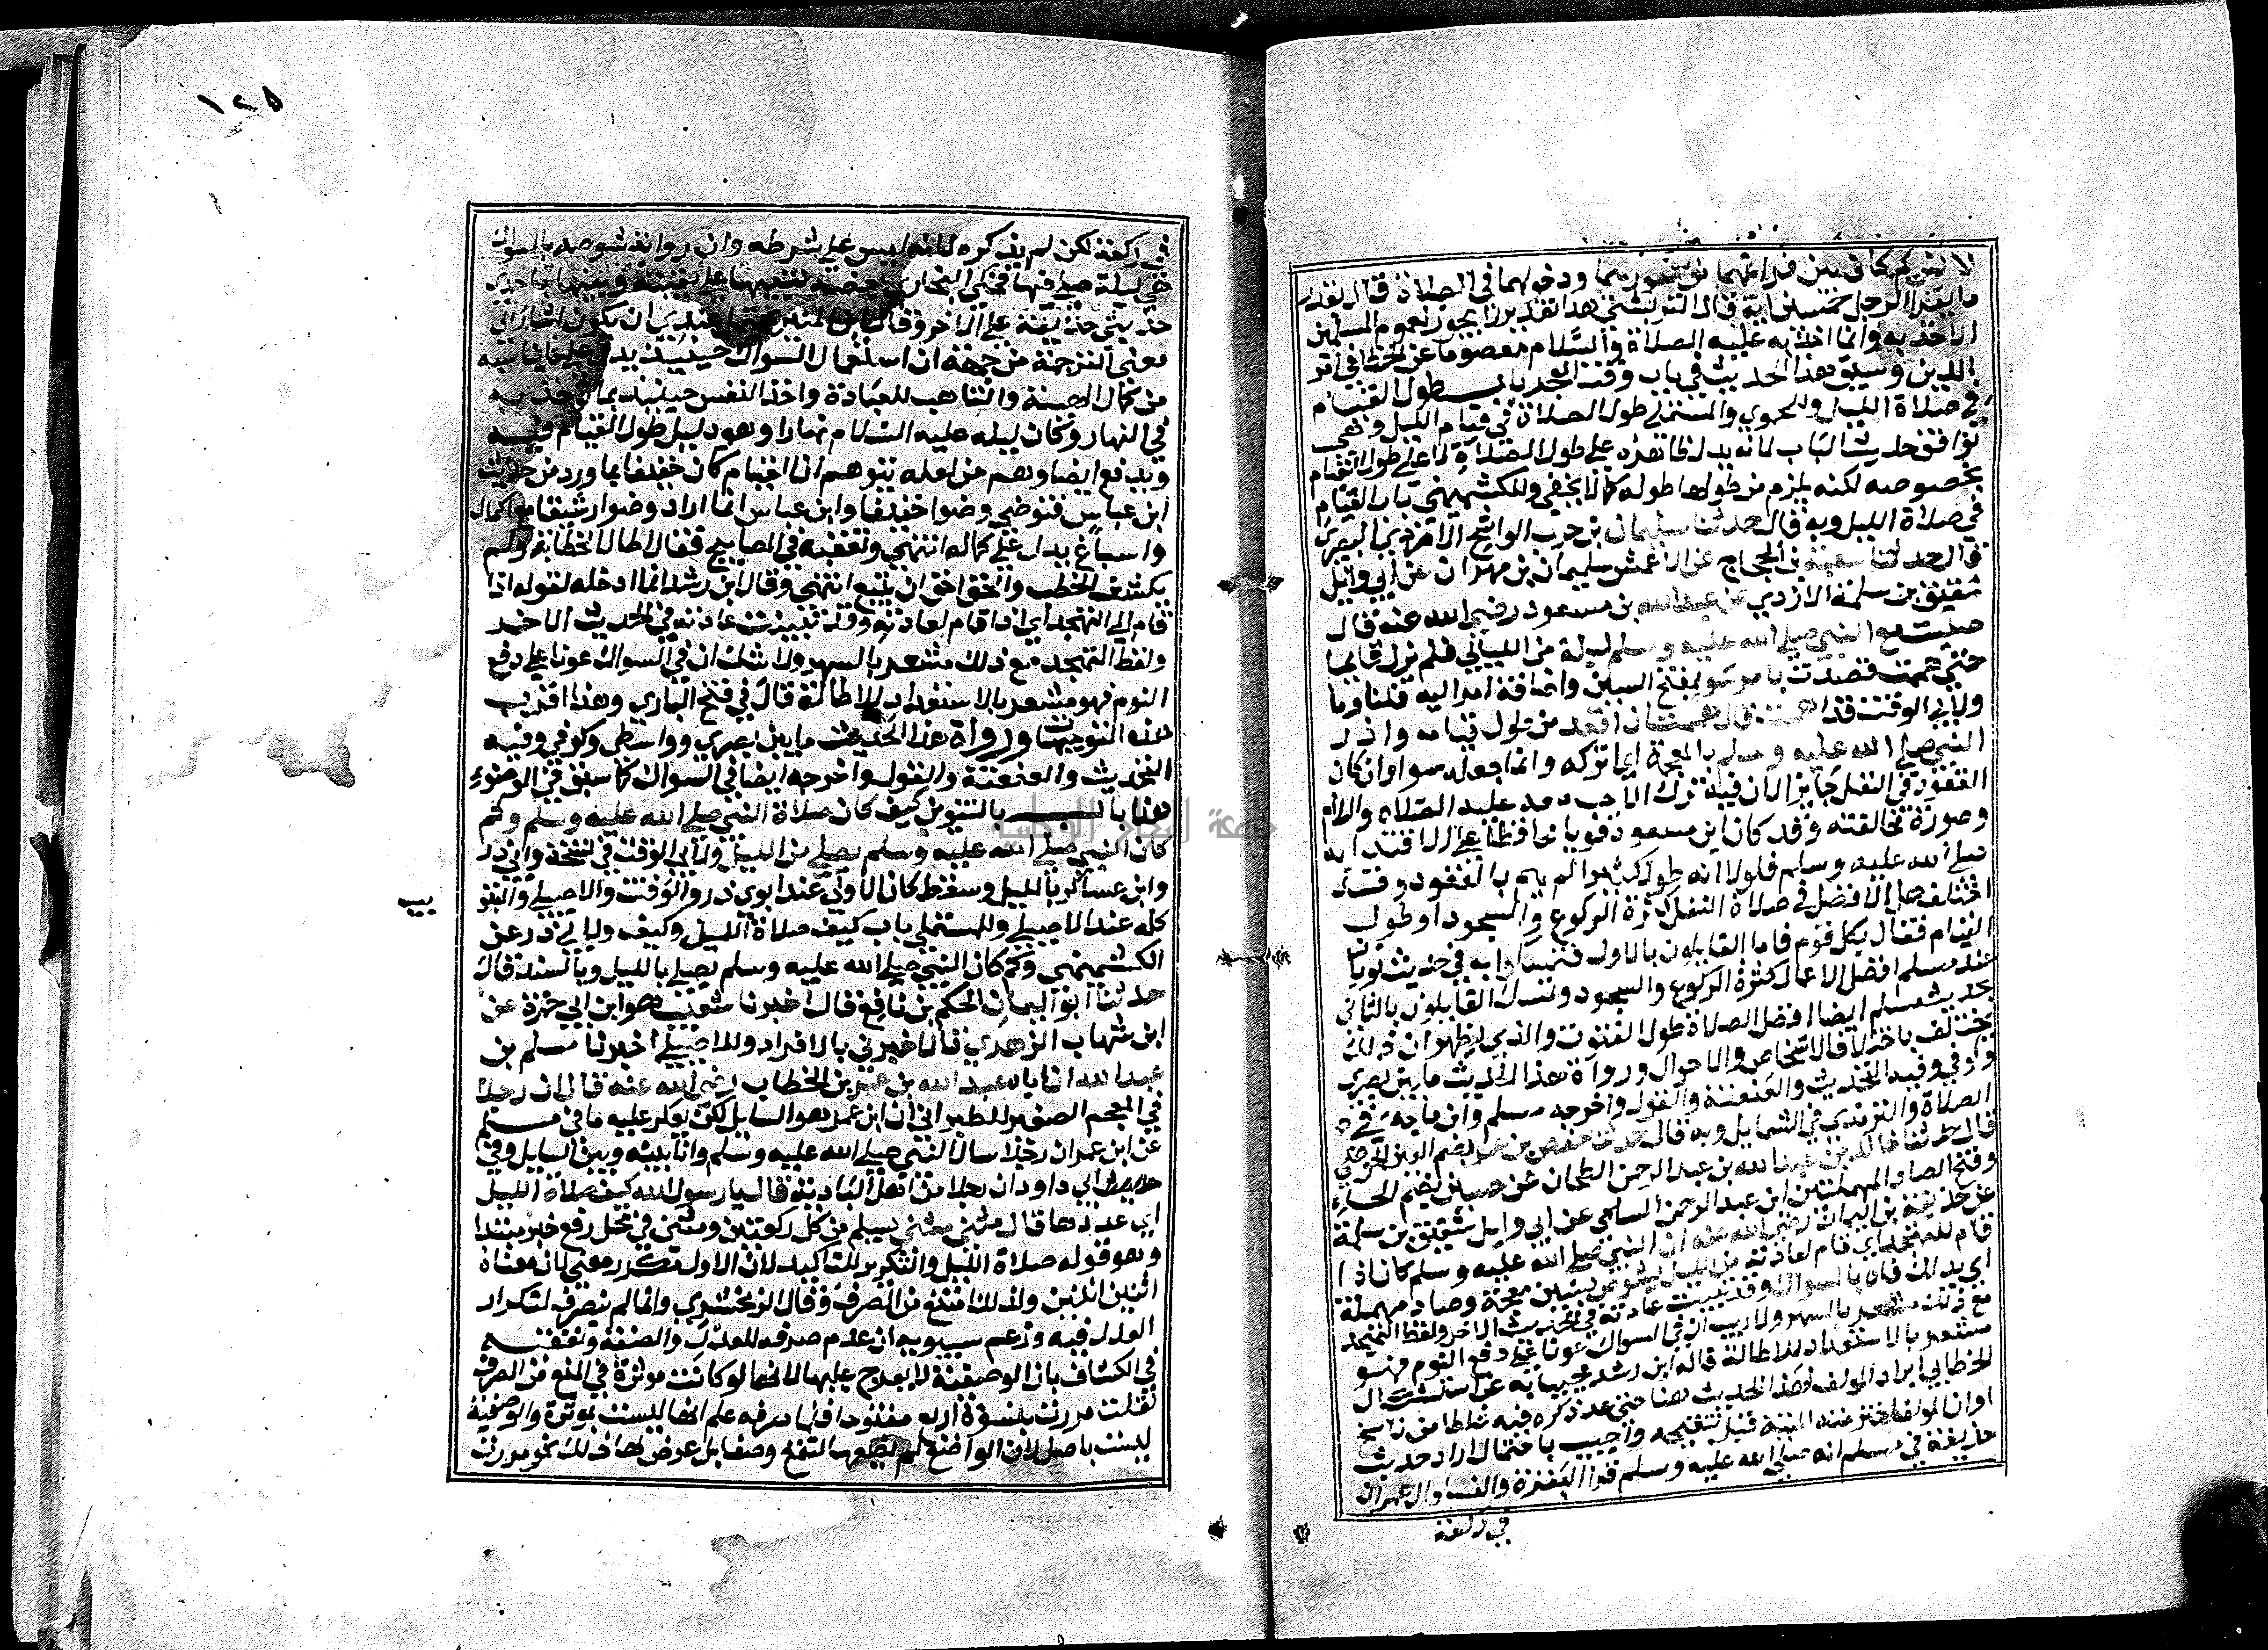 لانس كم كان بين فراغهما من سحورهما ودخولهما في الصلاة قال كقدر
ما يقرا الرجل خمسين اية قال التوربشتي هذا تقدير لا يجوز لعموم المسلمين
الاخذ به وانما اخذ به عليه الصلاة والسلام معصوما عن الخطا في امر
الدين وسبق هذا الحديث في باب وقت الفجر باب طول القيام
في صلاة الليل وللحموي والمستملي طول الصلاة في قيام الليل وهي
توافق حديث الباب لانه يدل ظاهره على طول الصلاة لا على طول القيام
بخصوصه لكنه يلزم من طولها طوله كما لا يخفى وللكشميهني باب القيام
في صلاة الليل وبه قال حدثنا سليمان بن حرب الواشحي الازدي البصري
قال حدثنا شعبة بن الحجاج عن الاعمش سليمان بن مهران عن ابي وايل
شقيق بن سلمة الازدي عن عبد الله بن مسعود رضي الله عنه قال
صليت مع النبي صلى الله عليه وسلم ليلة من الليالي فلم يزل قايما
حتى هممت قصدت بامر سو بفتح السين واضافة امر اليه قلنا وما
ولابي الوقت هممت قال هممت ان اقعد من طول قيامه واذر
النبي صلى الله عليه وسلم بالمعجمة اي اتركه وانما جعله سوا وان كان
القعود في النفل جايزا لان فيه ترك الادب معه عليه الصلاة والسلام
وصورة مخالفته وقد كان ابن مسعود قويا محافظا على الاقتدا به
صلى الله عليه وسلم فلولا انه طول كثيرا لم يهم بالقعود وقد
اختلف هل الافضل في صلاة النفل كثرة الركوع والسجود او طول
القيام فقال بكل قوم فاما القايلون بالاول فتمسكوا به في حديث ثوبان
عند مسلم افضل الاعمال كثرة الركوع والسجود وتمسك القايلون بالثاني
بحديث مسلم ايضا افضل الصلاة طول القنوت والذي يظهر ان ذلك
يختلف باختلاف الاشخاص والاحوال ورواة هذا الحديث ما بين بصري
وكوفي وفيه التحديث والعنعنة والقول واخرجه مسلم وابن ماجه في
الصلاة والترمذي في الشمايل وبه قال حدثنا حفص بن عمر بضم العين الحوضي
قال حدثنا خالد بن عبد الله بن عبد الرحمن الطحان عن حصين بضم الحاء
وفتح الصاد المهملتين ابن عبد الرحمن السلمي عن ابي وايل شقيق بن سلمة
عن حذيفة بن اليمان رضي الله عنه ان النبي صلى الله عليه وسلم كان اذا
قام للتهجد اي قام لعادته من الليل يشوص بشين معجمة وصاد مهملة
اي يدلك فاه بالسواك وقد تبينت عادته في الحديث الاخر ولفظ التهجد
مع ذلك مشعر بالسهر ولا ريب ان في السواك عونا على دفع النوم فهو
مشعر بالاستعداد للاطالة قاله ابن رشد مجيبا به عن استشكال
الخطابي ايراد المولف لهذا الحديث هنا حتى عد ذكره فيه غلطا من ناسخ
او ان المولف اخترمته المنية قبل تنقيحه واجيب باحتمال اراد حديث
حذيفة في مسلم انه صلى الله عليه وسلم قرا البقرة والنسا وال عمران
في ركعة
١٢٥
في ركعة لكن لم يذكره لانه ليس على شرطه وان رواية شوصه بالسواك
هي ليلة صلى فيها فحكى البخاري
حديثي حذيفة على الاخر وقال ابن المنير يحتمل عندي ان يكون اشار الى
معنى الترجمة من جهة ان استعمال السواك حينيذ يدل على ما يناسبه
من كمال الهيئة والتاهب للعبادة واخذ النفس حينيذ بما توخذ به
في النهار وكان ليله عليه السلام نهارا وهو دليل طول القيام فيه
ويدفع ايضا وهم من لعله يتوهم ان القيام كان خفيفا بما ورد من حديث
ابن عباس فتوضى وضوا خفيفا وابن عباس انما اراد وضوا رشيقا مع اكمال
واسباغ يدل على كماله انتهى وتعقبه في المصابيح فقال اطال الخطابة ولم
يكشف الخطب والحق احق ان يتبع انتهى وقال ابن رشد انما ادخله لقوله اذا
قام الى التهجد اي اذا قام لعادته وقد تبينت عادته في الحديث الاخر
ولفظ التهجد مع ذلك مشعر بالسهر ولا شك ان في السواك عونا على دفع
النوم فهو مشعر بالاستعداد للاطالة قال في فتح الباري وهذا اقرب
هذه التوجيهات ورواة هذا الحديث ما بين بصري وواسطي وكوفي وفيه
التحديث والعنعنة والقول واخرجه ايضا في السواك كما سبق في الوضوء
هنا باب بالتنوين كيف كان صلاة النبي صلى الله عليه وسلم وكم
كان النبي صلى الله عليه وسلم يصلي من الليل ولابي الوقت في نسخة وابي ذر
وابن عساكر بالليل وسقط كان الاولى عند ابوي ذر والوقت والاصيلي والتبو
يب
كله عند الاصيلي وللمستملي باب كيف صلاة الليل وكيف ولابي ذر عن
الكشميهني وكم كان النبي صلى الله عليه وسلم يصلي بالليل وبالسند قال
حدثنا ابو اليمان الحكم بن نافع قال اخبرنا شعيب هو ابن ابي حمزة عن
ابن شهاب الزهري قال اخبرني بالافراد وللاصيلي اخبرنا مسلم بن
عبد الله ان اباه عبد الله بن عمر بن الخطاب رضي الله عنه قال ان رجلا
في المعجم الصغير للطبراني ان ابن عمر هو السايل لكن يعكر عليه ما في مسلم
عن ابن عمر ان رجلا سال النبي صلى الله عليه وسلم وانا بينه وبين السايل وفي
حديث ابي داود ان رجلا من اهل البادية قال يا رسول الله كيف صلاة الليل
اي عددها قال مثنى مثنى يسلم من كل ركعتين ومثنى في محل رفع خبر مبتدا
وهو قوله صلاة الليل والتكرير للتاكيد لان الاول مكرر معنى لان معناه
اثنين اثنين ولذلك امتنع من الصرف وقال الزمخشري وانما لم ينصرف لتكرار
العدل فيه وزعم سيبويه ان عدم صرفه للعدل والصفة وتعقبه
في الكشاف بان الوصفية لا يعرج عليها لانها لو كانت موثرة في المنع من الصرف
لقلت مررت بنسوة اربع مفتوحا فلما صرفه علم انها ليست بموثرة والوصفية
ليست باصل لان الواضع لم يضعها لتقع وصفا بل عرض لها ذلك نحو مررت